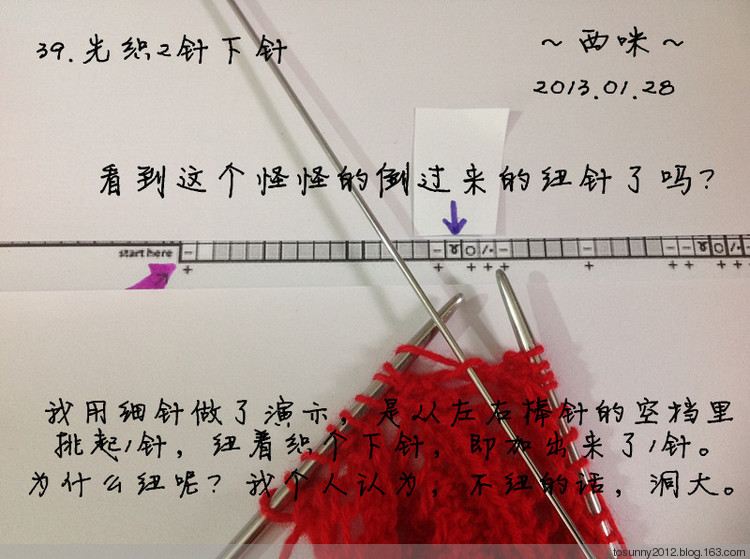 39.先织2针下针
~西咪~
2013.01.28
看到这个怪怪的倒过来的纽针了吗?
start here
我用细针做了演示,是从左右棒针的空档里
挑起1针,纽着织个下针,即加出来了1针。
为什么纽呢?我个人认为,不纽的话,洞大。
tosunny2012.blog.163.com